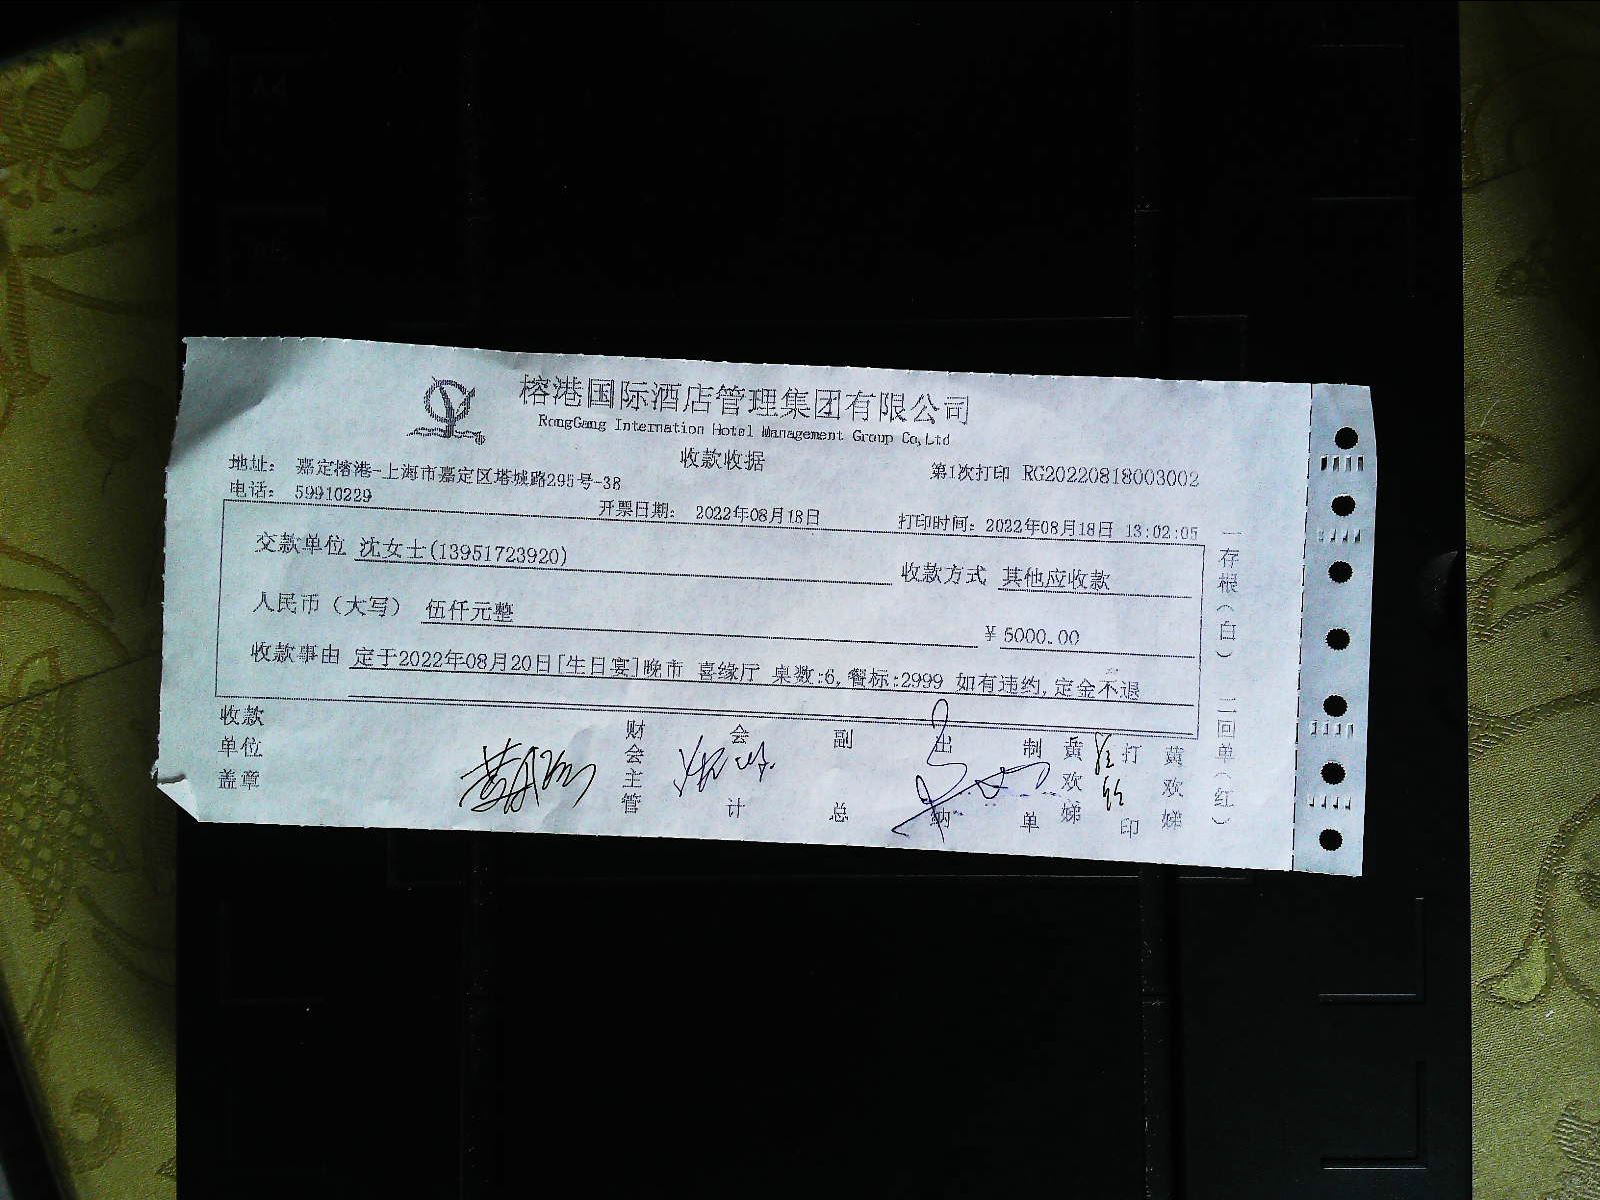 榕港国际酒店管理集团有限公司
RongGang Internation Hotel Management Group Co,Ltd
收款收据
第1次打印 RG20220818003002
地址: 嘉定榕港-上海市嘉定区塔城路295号-38
电话: 59910229
开票日期: 2022年08月18日 打印时间: 2022年08月18日 13:02:05
交款单位 沈女士(13951723920) 收款方式 其他应收款
人民币(大写) 伍仟元整 ¥ 5000.00
收款事由 定于2022年08月20日[生日宴]晚市 喜缘厅 桌数:6,餐标:2999 如有违约,定金不退
收款单位盖章 财会主管 会计 副总 出纳 制单 黄欢娣 打印 黄欢娣
一存根(白) 二回单(红)